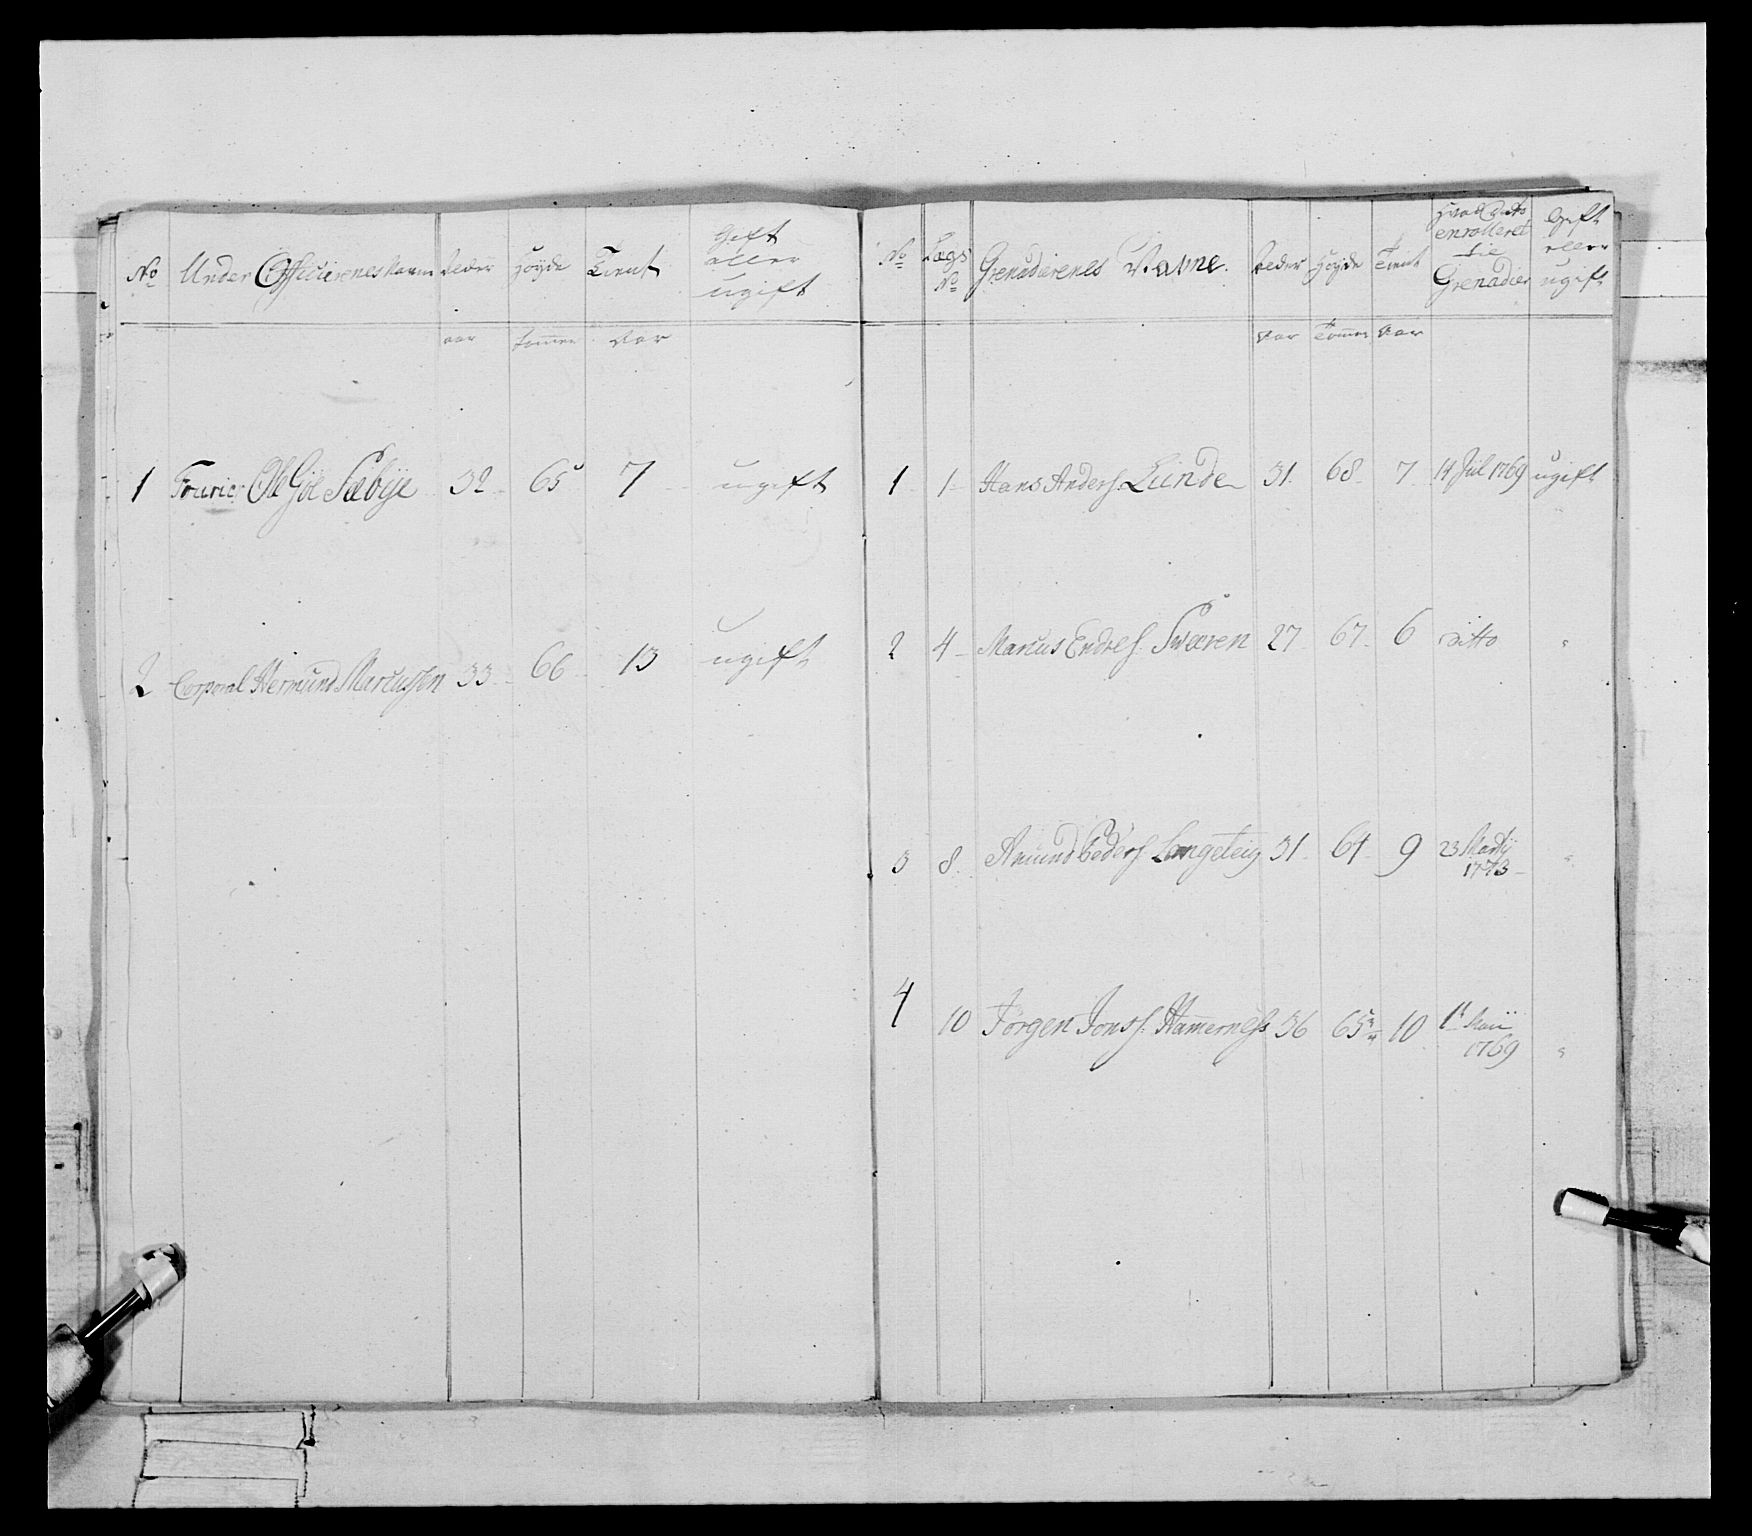 No Under Officiirenes Navne Alder Høyde Tient Gift eller ugift
aar tommer Aar
1 Fourier Ole Giøe Sæbÿe 32 65 7 ugift
2 Corporal Hermund Marcussen 33 66 13 ugift
No Lægs No Grenadierenes Navne. Alder Høyde Tient Hvad Dato enrolleret til Grenadier Gift eller ugift
Aar Tommer Aar
1 1 Hans Anders. Lunde 31. 68 7 14 Jul 1769 ugift
2 4 Marcus Endres. Sværen 27 67 6 ditto "
3 8. Amund Peders. Langeteig 31 64 9 23 Martÿ 1773 "
4 10 Jørgen Jons. Hamerness 36 65 10 1t Maii 1769 "